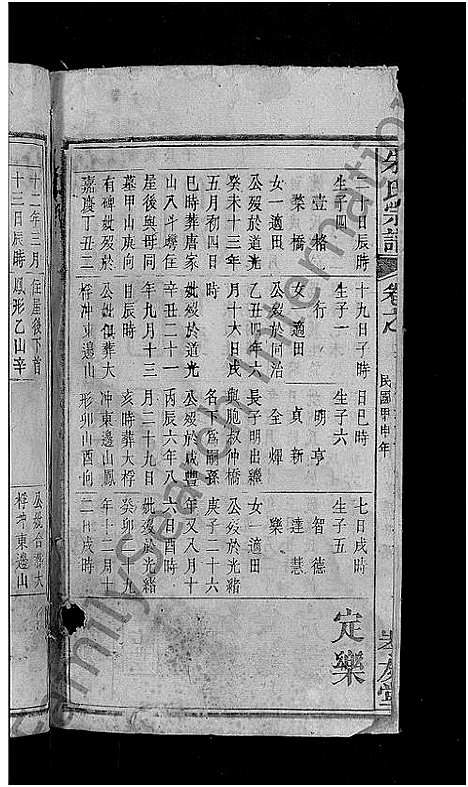 朱氏宗譜
卷之
民國甲申年
孝友堂
一日辰時
生子四
豈 格
榮 橋
女一適田
公殁於道光
癸未十三年
五月初四日
巳時葬唐家
山八斗塝住
屋後與母同
墓甲山庚向
有碑妣殁於
嘉慶丁丑二
十九日子時
生子一
行
女適田
公殁於同治
乙丑四年六
月十六日戌
時
妣殁於道光
辛丑二十一
年九月十三
日辰時
公妣俱葬大
桴冲東邊山
日巳時
生子六
明 亨
貞 新
全 輝
長子明出繼
與胞叔仲橋
名下爲嗣孫
公殁於咸豐
丙辰六年八
月二十九日
亥時葬大桴
冲東邊山鳳
形卯山酉向
七日戌時
生子五
智 德
達 慧
樂
女一適田
公殁於光緒
庚子二十六
年又八月十
六日酉時
妣殁於光緒
癸卯二十九
年十二月十
二日戌時
定樂
十二年三月
十三日辰時
住屋後下首
鳳形乙山辛
公妣合葬大
桴冲東邊山